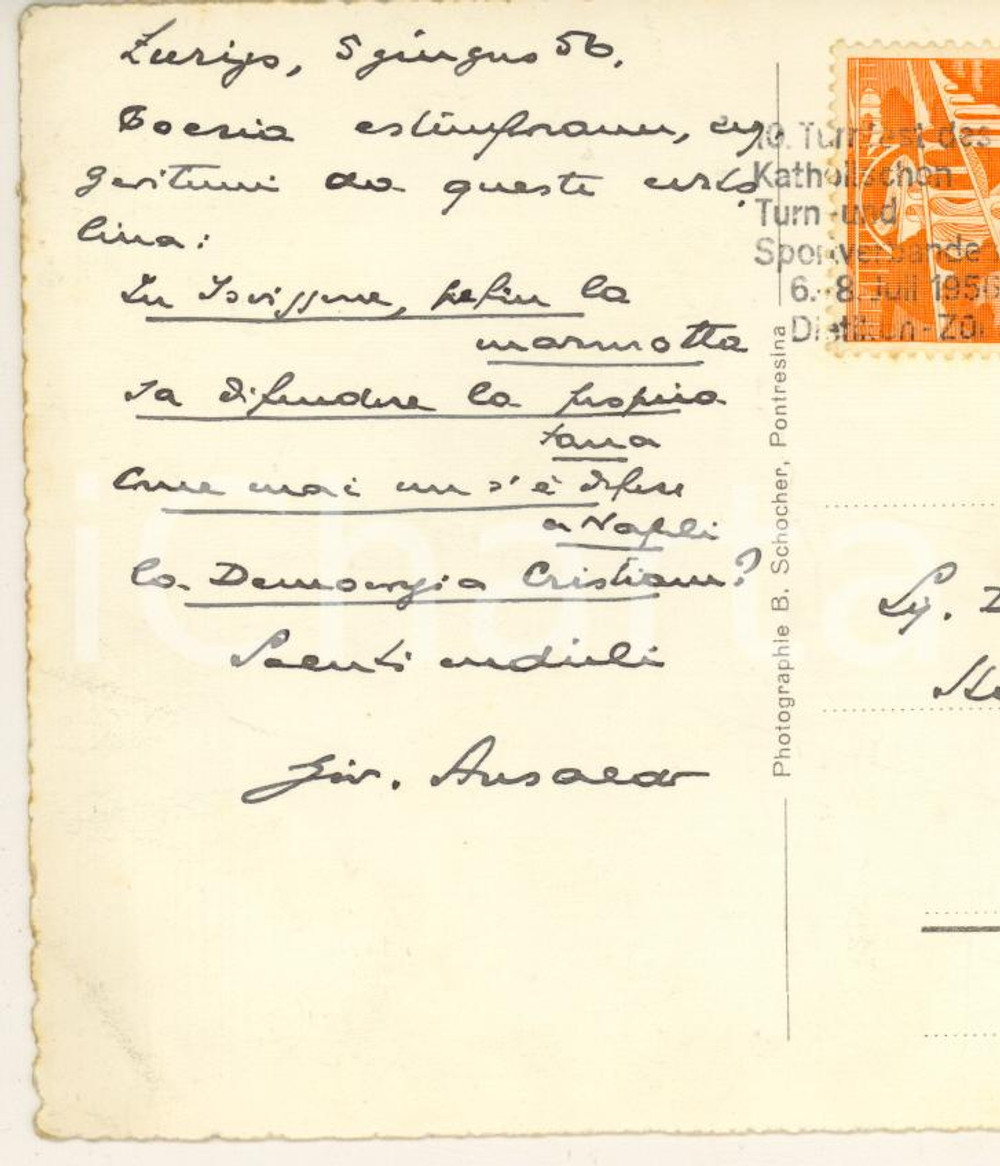 Zurigo, 5 giugno 56.
Poesia estemporanea, sug
geritami da questa carto
lina:
In Isvizzera, persin la
marmotta
sa difendere la propria
tana
Come mai non s'è difesa
a Napoli
la Democrazia Cristiana?
Saluti cordiali
Giov. Ansaldo
10. Turnfest des
Katholischen
Turn- und
Sportverbande
6.-8. Juli 1956
Dietikon-Zü
Photographie B. Schocher, Pontresina
iCharta